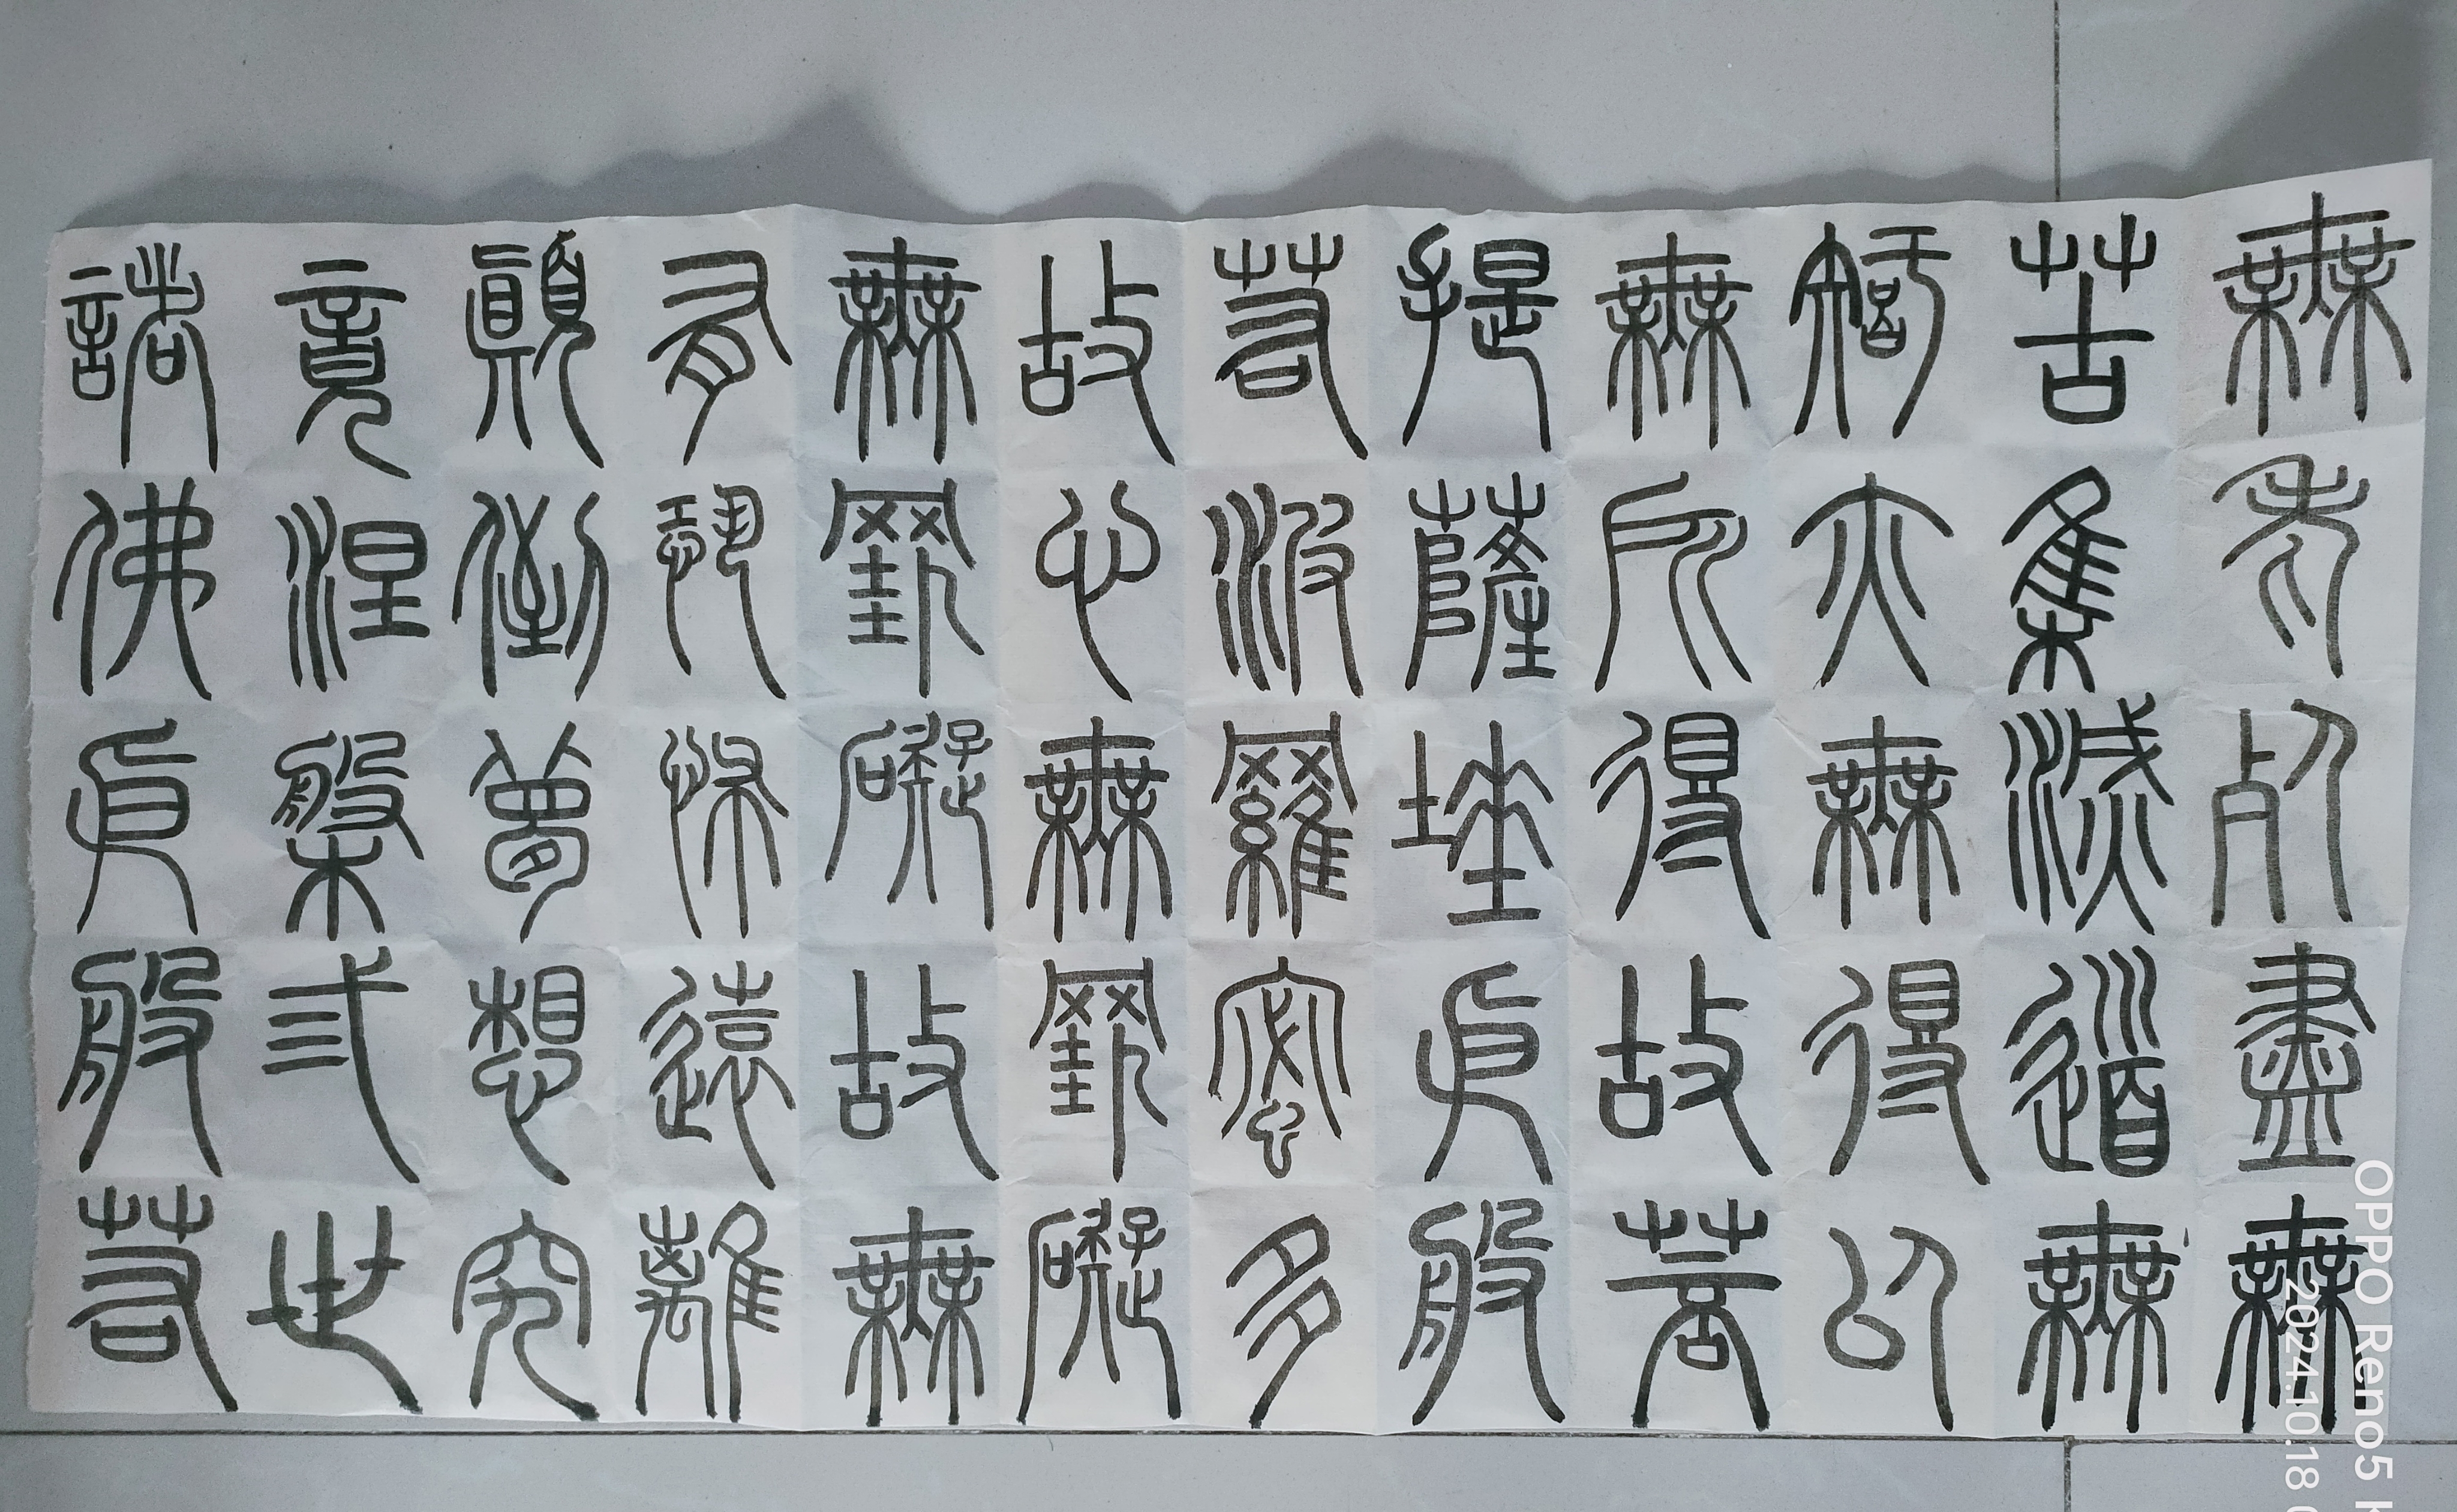 無老死盡無
苦集滅道無
智亦無得以
無所得故菩
提薩埵依般
若波羅蜜多
故心無罣礙
無罣礙故無
有恐怖遠離
顛倒夢想究
竟涅槃弎世
諸佛依般若
OPPO Reno5
2024.10.18